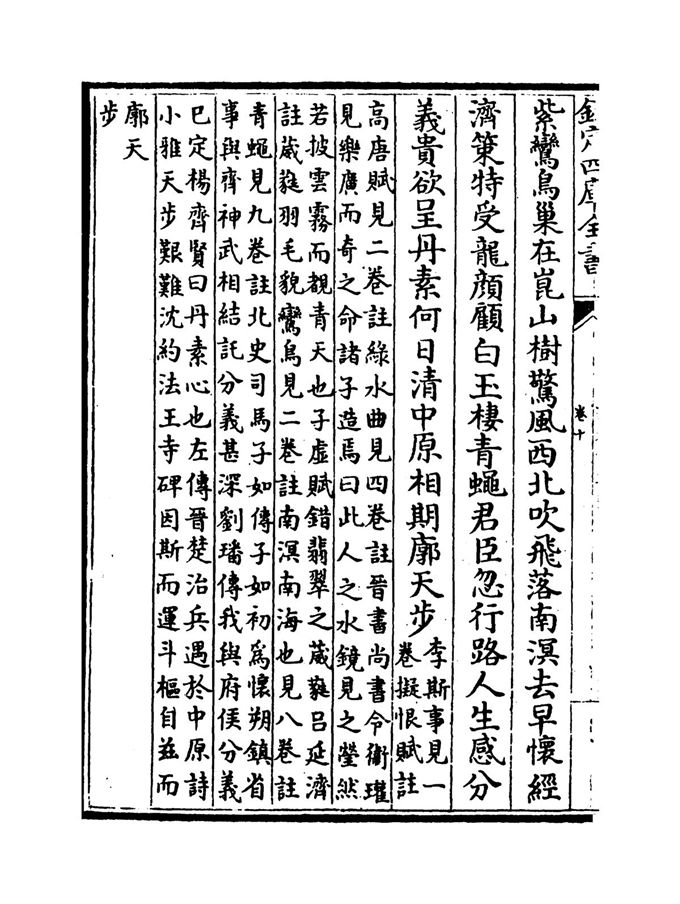 欽定四庫全書
卷十
紫鸞鳥巢在崑山樹驚風西北吹飛落南溟去早懷經
濟策特受龍顔顧白玉棲青蠅君臣忽行路人生感分
義貴欲呈丹素何日清中原相期廓天步
李斯事見一
卷擬恨賦註
高唐賦見二卷註綠水曲見四卷註晉書尚書令衛瓘
見樂廣而奇之命諸子造焉曰此人之水鏡見之瑩然
若披雲霧而覩青天也子虛賦錯翡翠之葳蕤吕延濟
註葳蕤羽毛貌鸞鳥見二卷註南溟南海也見八卷註
青蠅見九卷註北史司馬子如傳子如初爲懷朔鎮省
事與齊神武相結託分義甚深劉璠傳我與府侯分義
已定楊齊賢曰丹素心也左傳晉楚治兵遇於中原詩
小雅天步艱難沈約法王寺碑因斯而運斗樞自兹而
廓天
步